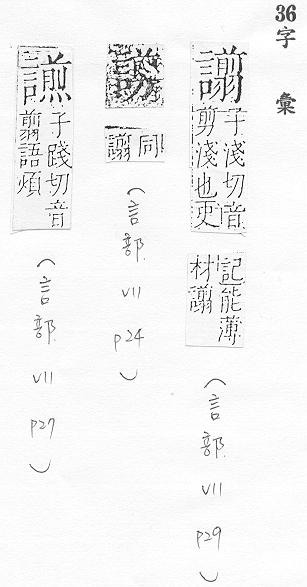 36
字彙
謭
子淺切音
剪淺也史
記能薄
材謭
(言部 VII p29)
同
謭
(言部 VII p24)
子踐切音
翦語煩
(言部 VII p27)